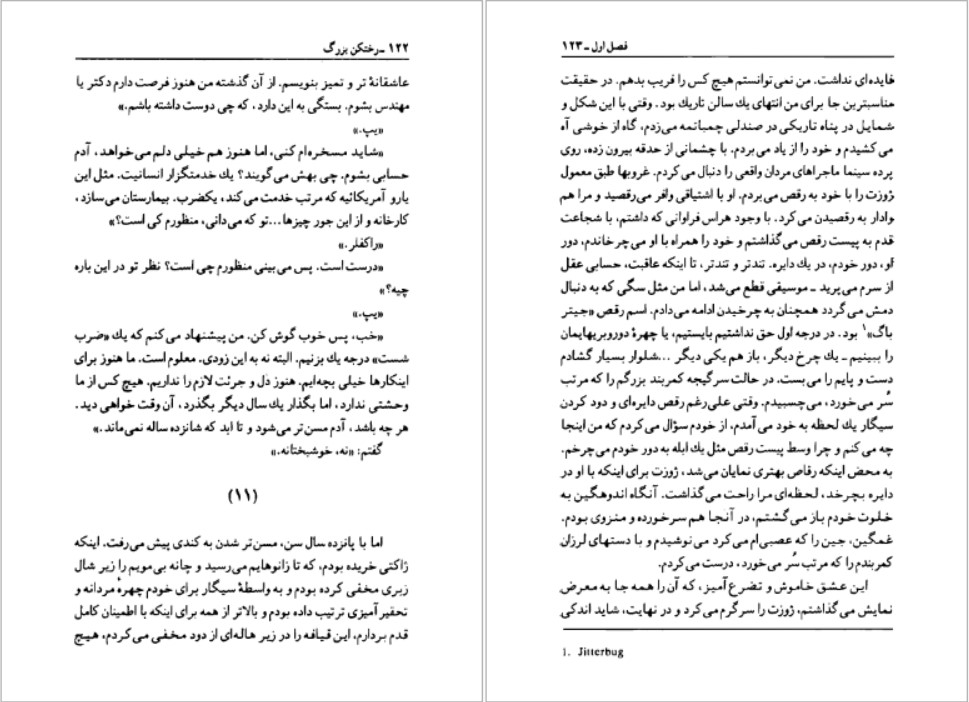 ۱۲۲ ـ رختکن بزرگ
عاشقانهٔ تر و تمیز بنویسم. از آن گذشته من هنوز فرصت دارم دکتر یا
مهندس بشوم. بستگی به این دارد، که چی دوست داشته باشم.»
«یپ.»
«شاید مسخره‌ام کنی، اما هنوز هم خیلی دلم می‌خواهد، آدم
حسابی بشوم. چی بهش می‌گویند؟ یك خدمتگزار انسانیت. مثل این
یارو آمریکائیه که مرتب خدمت می‌کند، یکضرب. بیمارستان می‌سازد،
کارخانه و از این جور چیزها...تو که می‌دانی، منظورم کی است؟»
«راکفلر.»
«درست است. پس می‌بینی منظورم چی است؟ نظر تو در این باره
چیه؟»
«یپ.»
«خب، پس خوب گوش کن. من پیشنهاد می‌کنم که یك «ضرب
شست» درجه یك بزنیم. البته نه به این زودی. معلوم است. ما هنوز برای
اینکارها خیلی بچه‌ایم. هنوز دل و جرئت لازم را نداریم. هیچ کس از ما
وحشتی ندارد، اما بگذار یك سال دیگر بگذرد، آن وقت خواهی دید.
هر چه باشد، آدم مسن‌تر می‌شود و تا ابد که شانزده ساله نمی‌ماند.»
گفتم: «نه، خوشبختانه.»
(۱۱)
اما با پانزده سال سن، مسن‌تر شدن به کندی پیش می‌رفت. اینکه
ژاکتی خریده بودم، که تا زانوهایم می‌رسید و چانه بی‌مویم را زیر شال
زبری مخفی کرده بودم و به واسطهٔ سیگار برای خودم چهرهٔ مردانه و
تحقیر آمیزی ترتیب داده بودم و بالاتر از همه برای اینکه با اطمینان کامل
قدم بردارم، این قیافه را در زیر هاله‌ای از دود مخفی می‌کردم، هیچ
فصل اول ـ ۱۲۳
فایده‌ای نداشت. من نمی‌توانستم هیچ کس را فریب بدهم. در حقیقت
مناسبترین جا برای من انتهای یك سالن تاریك بود. وقتی با این شکل و
شمایل در پناه تاریکی در صندلی چمباتمه می‌زدم، گاه از خوشی آه
می‌کشیدم و خود را از یاد می‌بردم. با چشمانی از حدقه بیرون زده، روی
پرده سینما ماجراهای مردان واقعی را دنبال می‌کردم. غروبها طبق معمول
ژوزت را با خود به رقص می‌بردم. او با اشتیاقی وافر می‌رقصید و مرا هم
وادار به رقصیدن می‌کرد. با وجود هراس فراوانی که داشتم، با شجاعت
قدم به پیست رقص می‌گذاشتم و خود را همراه با او می‌چرخاندم، دور
او، دور خودم، در یك دایره. تندتر و تندتر، تا اینکه عاقبت، حسابی عقل
از سرم می‌پرید ـ موسیقی قطع می‌شد، اما من مثل سگی که به دنبال
دمش می‌گردد همچنان به چرخیدن ادامه می‌دادم. اسم رقص «جیتر
باگ»۱ بود. در درجه اول حق نداشتیم بایستیم، یا چهرهٔ دوروبریهایمان
را ببینیم ـ یك چرخ دیگر، باز هم یکی دیگر ...شلوار بسیار گشادم
دست و پایم را می‌بست. در حالت سرگیجه کمربند بزرگم را که مرتب
سُر می‌خورد، می‌چسبیدم. وقتی علی‌رغم رقص دایره‌ای و دود کردن
سیگار یك لحظه به خود می‌آمدم، از خودم سؤال می‌کردم که من اینجا
چه می‌کنم و چرا وسط پیست رقص مثل یك ابله به دور خودم می‌چرخم.
به محض اینکه رقاص بهتری نمایان می‌شد، ژوزت برای اینکه با او در
دایره بچرخد، لحظه‌ای مرا راحت می‌گذاشت. آنگاه اندوهگین به
خلوت خودم باز می‌گشتم، در آنجا هم سرخورده و منزوی بودم.
غمگین، جین را که عصبی‌ام می‌کرد می‌نوشیدم و با دستهای لرزان
کمربندم را که مرتب سُر می‌خورد، درست می‌کردم.
این عشق خاموش و تضرع آمیز، که آن را همه جا به معرض
نمایش می‌گذاشتم، ژوزت را سرگرم می‌کرد و در نهایت، شاید اندکی
1. Jitterbug